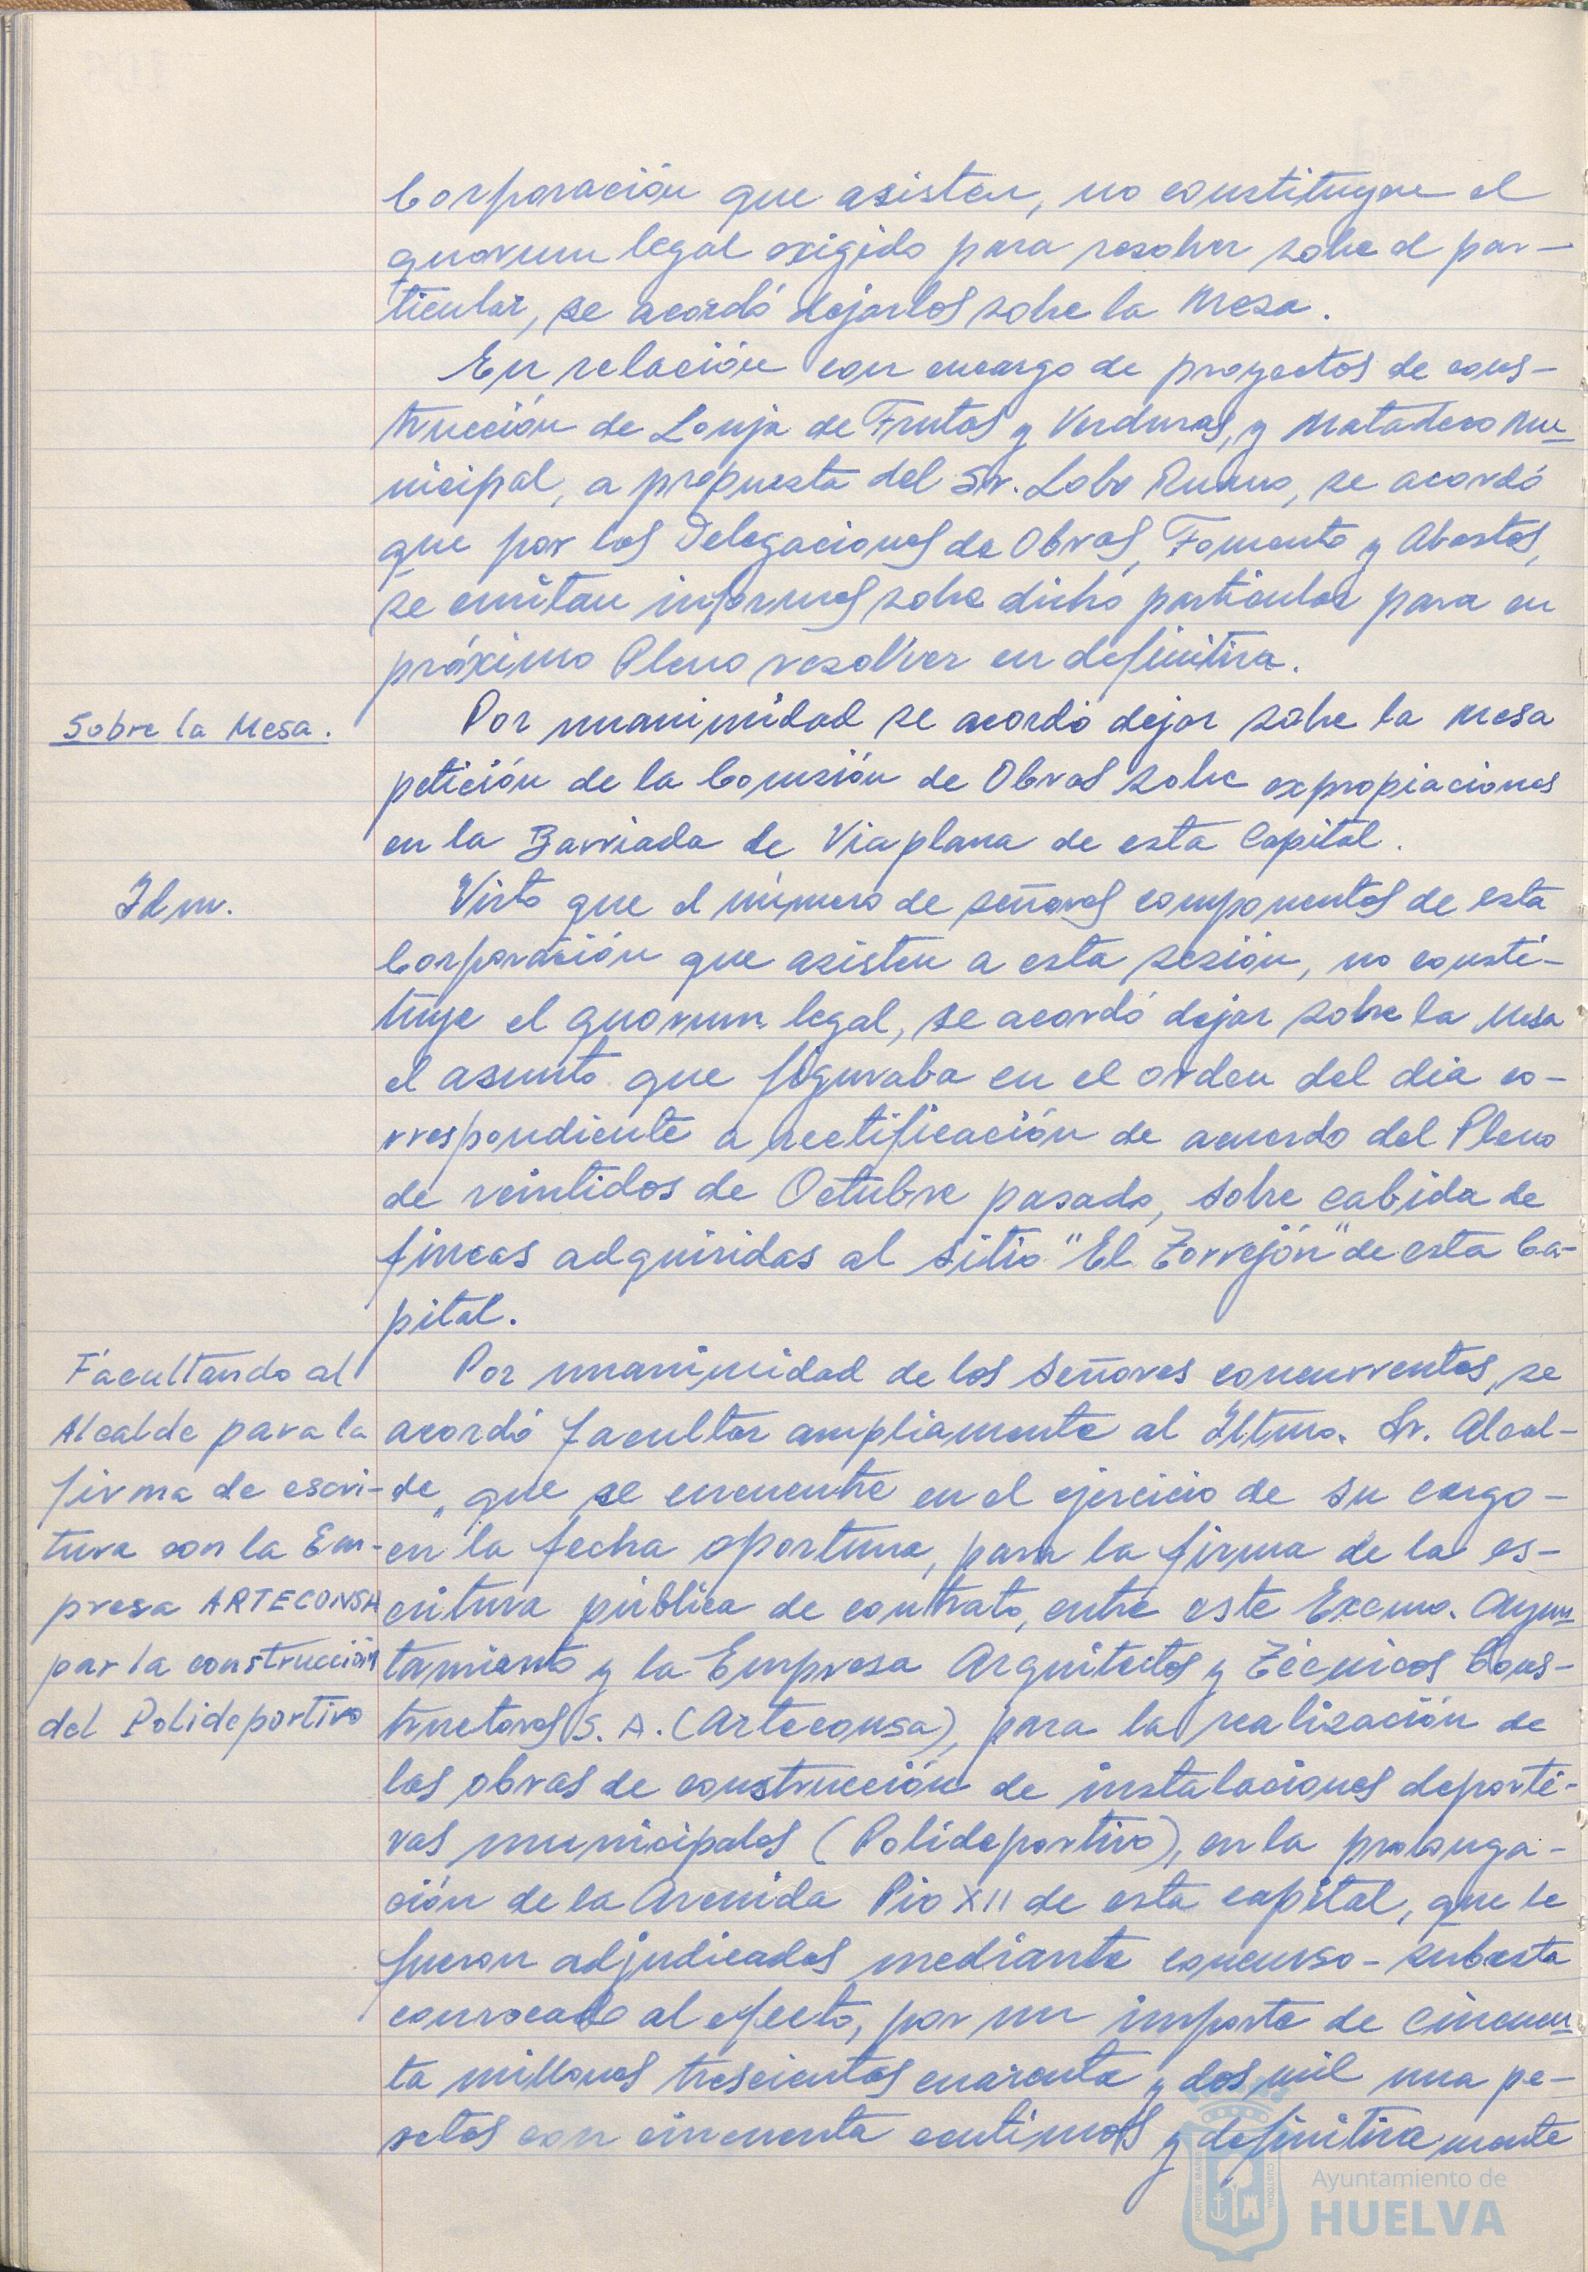 Corporación que asisten, no constituyen el
quorum legal exigido para resolver sobre el par-
ticular, se acordó dejarlos sobre la Mesa.
En relación con encargo de proyectos de cons-
trucción de Lonja de Frutas y Verduras, y Matadero Mu-
nicipal, a propuesta del Sr. Lobo Ruano, se acordó
que por las Delegaciones de Obras, Fomento y Abastos,
se emitan informes sobre dicho particular para en
próximo Pleno resolver en definitiva.
Sobre la Mesa.
Por unanimidad se acordó dejar sobre la Mesa
petición de la Comisión de Obras sobre expropiaciones
en la Barriada de Viaplana de esta Capital.
Idm.
Visto que el número de señores componentes de esta
Corporación que asisten a esta sesión, no consti-
tuye el quorum legal, se acordó dejar sobre la Mesa
el asunto que figuraba en el orden del dia co-
rrespondiente a rectificación de acuerdo del Pleno
de veintidos de Octubre pasado, sobre cabida de
fincas adquiridas al sitio "El Torrejón" de esta Ca-
pital.
Facultando al
Alcalde para la
firma de escri-
tura con la Em-
presa ARTECONSA
par la construcción
del Polideportivo
Por unanimidad de los señores concurrentes, se
acordó facultar ampliamente al Iltmo. Sr. Alcal-
de, que se encuentre en el ejercicio de su cargo -
en la fecha oportuna, para la firma de la es-
critura pública de contrato, entre este Excmo. Ayun-
tamiento y la Empresa Arquitectos y Técnicos Cons-
tructores S. A. (Arteconsa), para la realización de
las obras de construcción de instalaciones deporti-
vas municipales (Polideportivo), en la prolonga-
ción de la Avenida Pio XII de esta capital, que le
fueron adjudicadas mediante concurso-subasta
convocado al efecto, por un importe de cincuen-
ta millones trescientas cuarenta y dos mil una pe-
setas con cincuenta centimos y definitivamente
Ayuntamiento de
HUELVA